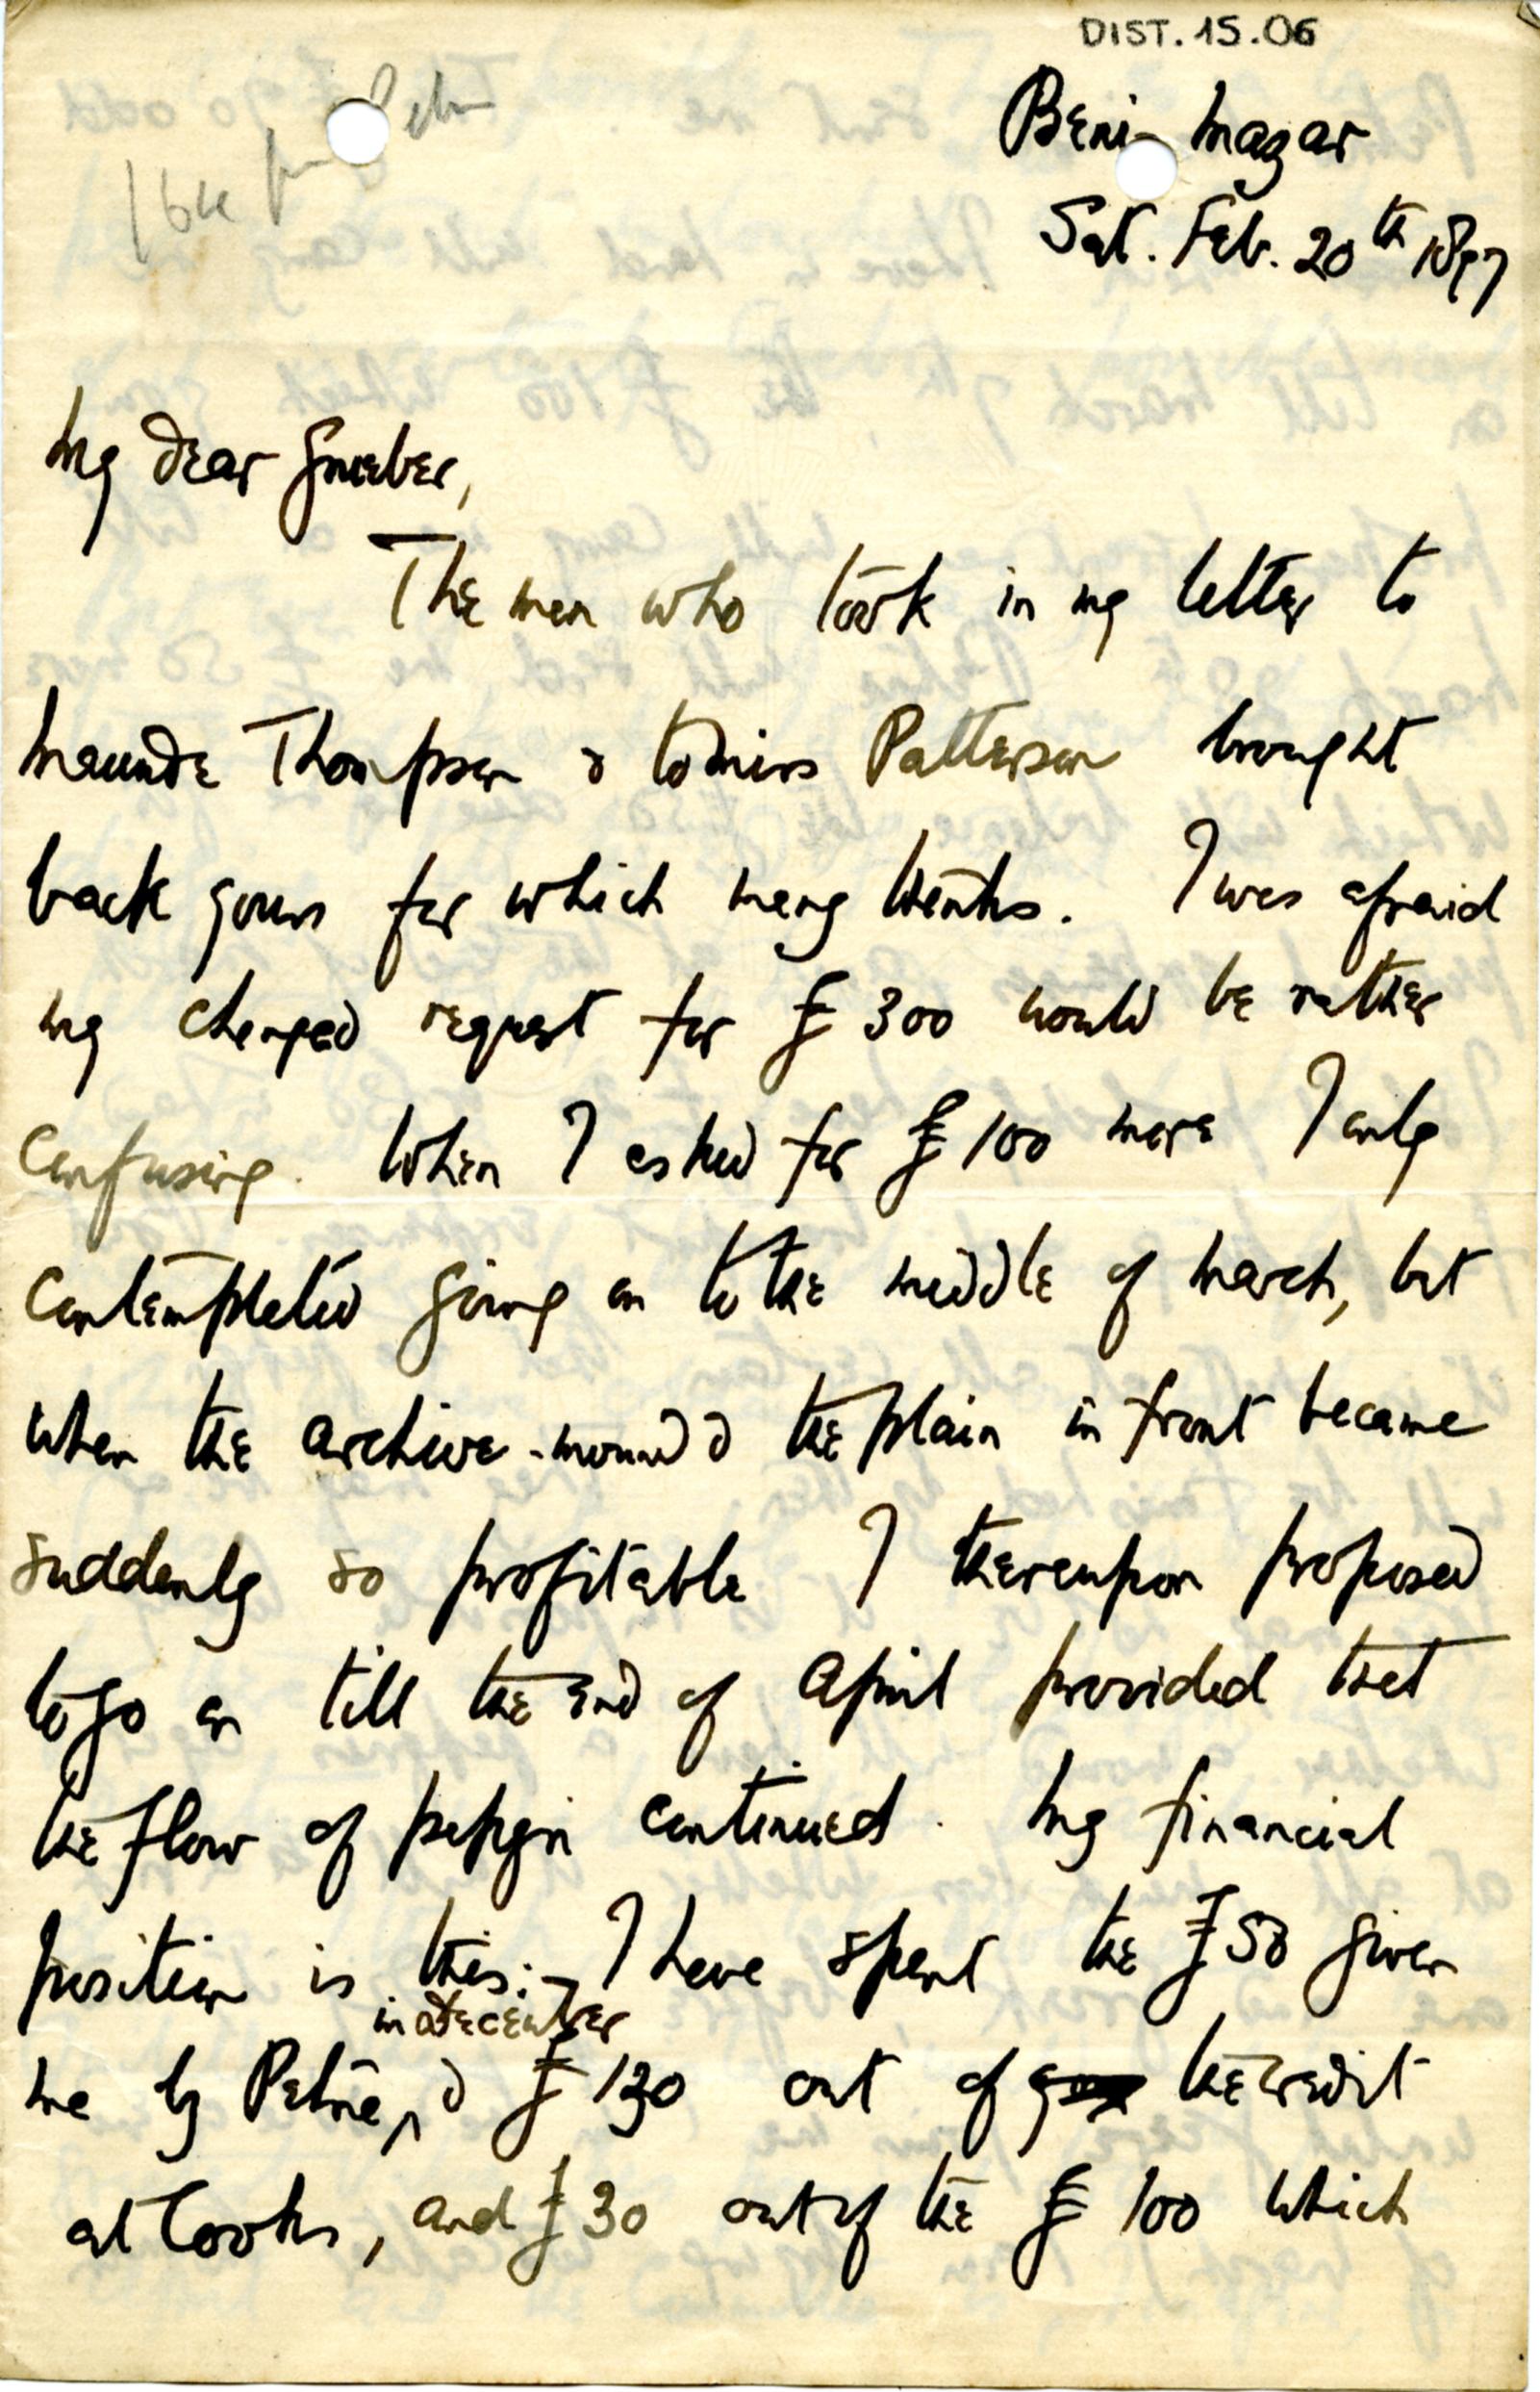 DIST. 15.06
Beni Mazar
Sat. Feb. 20th 1897
My dear Grueber,
The men who took in my letter to
Maunde Thompson & to Miss Patterson brought
back yours for which many thanks. I was afraid
my changed request for £300 would be rather
confusing. When I asked for £100 more I only
contemplated going on to the middle of March, but
when the archive-mound & the plain in front became
suddenly so profitable I thereupon proposed
to go on till the end of April provided that
the flow of papyri continued. My financial
position is this:- I have spent the £50 given
in December
me by Petrie, & £130 out of the credit
at Cooks, and £30 out of the £100 which